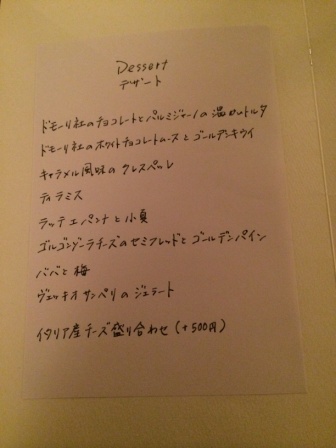 Dessert
デザート
ドモーリ社のチョコレートとパルミジャーノの温かいトルタ
ドモーリ社のホワイトチョコレートムースとゴールデンキウイ
キャラメル風味のクレスペッレ
ティラミス
ラッテ エ パンナと小夏
ゴルゴンゾーラチーズのセミフレッドとゴールデンパイン
ババと梅
ヴェッキオ サンペリのジェラート
イタリア産チーズ盛り合わせ (+500円)